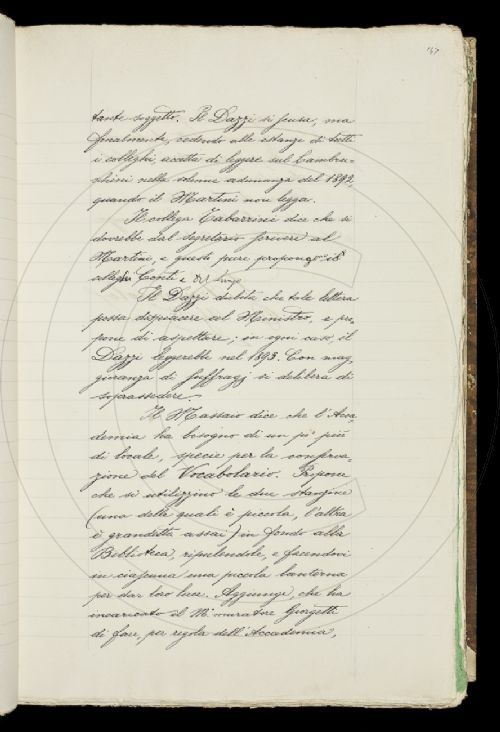 167
tante soggetto. Il Dazzi si scusa, ma
finalmente, cedendo alle istanze di tutti
i colleghi accetta di leggere sul Cambra-
nella solenne adunanza del 1893,
quando il Martini non legga.
Il collega Tabarrini dice che si
dovrebbe dal Segretario scrivere al
Martini, e questo pure propongono i
colleghi Conti e Del Lungo
Il Dazzi dubita che tale lettera
possa dispiacere al Ministro, e pro-
pone di aspettare; in ogni caso, il
Dazzi leggerebbe nel 1893. Con mag-
gioranza di suffragj si delibera di
soprassedere.
Il Massaio dice che l'Acca-
demia ha bisogno di un po' più
di locale, specie per la conserva-
zione del Vocabolario. Propone
che si utilizzino le due stanzine
(una delle quali è piccola, l'altra
è grandetta assai) in fondo alla
Biblioteca, ripulendole, e facendovi
in ciascuna una piccola lanterna
per dar loro luce. Aggiunge, che ha
incaricato il Mo muratore Giorgetti
di fare, per regola dell'Accademia,